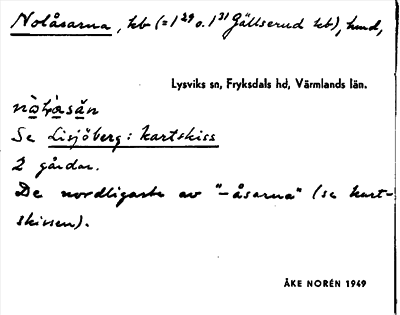 Nolåsarna, hb (= 1²⁹ o. 1³¹ Gällserud hb), hmd,
Lysviks sn, Fryksdals hd, Värmlands län.
Se Lisjöberg: kartskiss
2 gårdar.
De nordligaste av "-åsarna" (se kart-
skissen).
ÅKE NORÉN 1949